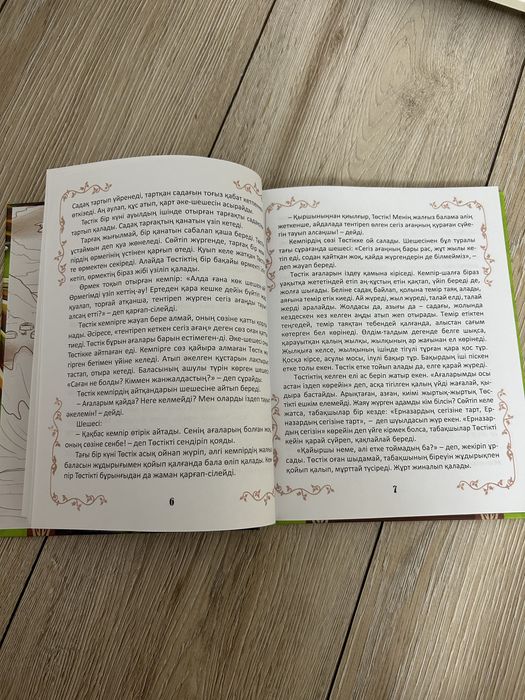 Садақ тартып үйренеді, тартқан садағын тоғыз қабат кетпеннен
өткізеді. Аң аулап, құс атып, қарт әке-шешесін асырайды.
Төстік бір күні ауылдың ішінде отырған тарғақты садақпен
тартып қалады. Садақ, тарғақтың қанатын үзіп кетеді.
Тарғақ жығылмай, бір қанатын сабалап қаша береді. Төстік
ұстаймын деп қуа жөнеледі. Сөйтіп жүргенде, тарғақ бір кем-
пірдің өрмегінің үстінен қарғып өтеді. Қуып келе жатқан Төстік
те өрмектен секіреді. Алайда Төстіктің бір бақайы өрмекті іліп
кетіп, өрмектің біраз жібі үзіліп қалады.
Өрмек тоқып отырған кемпір: «Алда ғана көк шешек
Өрмегімді үзіп кеттің-ау! Ертеден қара кешке дейін бүйтіп
қуалап, торғай атқанша, тентіреп жүрген сегіз ағаңды
алсаң етті?» – деп қарғап-сілейді.
Төстік кемпірге жауап бере алмай, оның сөзіне қатты қоры-
нады. Әсіресе, «тентіреп кеткен сегіз ағаң» деген сөз оған
тиеді. Төстік бұрын ағалары барын естімеген-ді. Әке-шешесі
Төстікке айтпаған еді. Кемпірге сөз қайыра алмаған Төстік
пірген бетімен үйіне келеді. Атып әкелген құстарын лақтырып
тастап, отыра кетеді. Баласының ашулы түрін көрген шешесі:
«Саған не болды? Кіммен жанжалдастың?» – деп сұрайды.
Төстік кемпірдің айтқандарын шешесіне айтып береді.
– Ағаларым қайда? Неге келмейді? Мен оларды іздеп тауып
әкелемін! – дейді.
Шешесі:
– Қақбас кемпір өтірік айтады. Сенің ағаларың болған жоқ,
оның сөзіне сенбе! – деп Төстікті сендіріп қояды.
Тағы бір күні Төстік асық ойнап жүріп, әлгі кемпірдің жалғыз
баласын жұдырығымен қойып қалғанда бала өліп қалады. Кем-
пір Төстікті бұрынғыдан да жаман қарғап-сілейді.
6
– Қыршыныңнан қиылғыр, Төстік! Менің жалғыз балама әлің
жеткенше, айдалада тентіреп өлген сегіз ағаңның қураған сүйе-
гін тауып алсаңшы! – дейді.
Кемпірдің сөзі Төстікке ой салады. Шешесінен бұл туралы
тағы сұрағанда шешесі: «Сегіз ағаңның бары рас, жұт жылы ке-
тіп еді, содан қайтқан жоқ, қайда жүргендерін де білмейміз», –
деп жауап береді.
Төстік ағаларын іздеу қамына кіріседі. Кемпір-шалға біраз
уақытқа жететіндей етіп аң, құстың етін қақтап, үйіп береді де,
жолға шығады. Беліне садақ байлап, қолына темір таяқ алады,
аяғына темір етік киеді. Ай жүреді, жыл жүреді, талай елді, талай
жерді аралайды. Жолдасы да, азығы да – садағы, жолында
кездескен кез келген аңды атып жеп отырады. Темір етіктен
теңгедей, темір таяқтан тебендей қалғанда, алыстан сағым
көтерген бел көрінеді. Әлдим-талдым дегенде белге шықса,
қарауытқан қалың жылқы, жылқының ар жағынан ел көрінеді.
Жылқыға келсе, жылқының ішінде тігулі тұрған қара қос тұр.
Қосқа кірсе, асулы мосы, ілулі бақыр тұр. Бақырдың іші піскен
етке толы екен. Төстік етке тойып алады да, елге қарай жүреді.
Төстіктің келген елі ас беріп жатыр екен. «Ағаларымды осы
астан іздеп көрейін» деп, асқа тігілген қалың үйді жағалай, қы-
дыра бастайды. Арықтаған, азған, киімі жыртық-жыртық Төс-
тікті ешкім елемейді. Жаяу жүрген адамды кім білсін? Сөйтіп келе
жатса, табақшылар бір кезде: «Ерназардың сегізіне тарт, Ерна-
зардың сегізіне тарт», – деп шуылдасып жүр екен. «Ерназар-
дың сегізін көрейін деп үйге кірмек болса, табақшылар Төстікті
кейін қарай сүйреп, қақпайлай береді.
«Қайыршы неме, әлі етке тоймадың ба?» – деп, жекіріп ұр-
сады. Төстік оған шыдамай, табақшының біреуін жұдырықпен
қойып қалып, мұрттай түсіреді. Жұрт жиналып қалады.
7